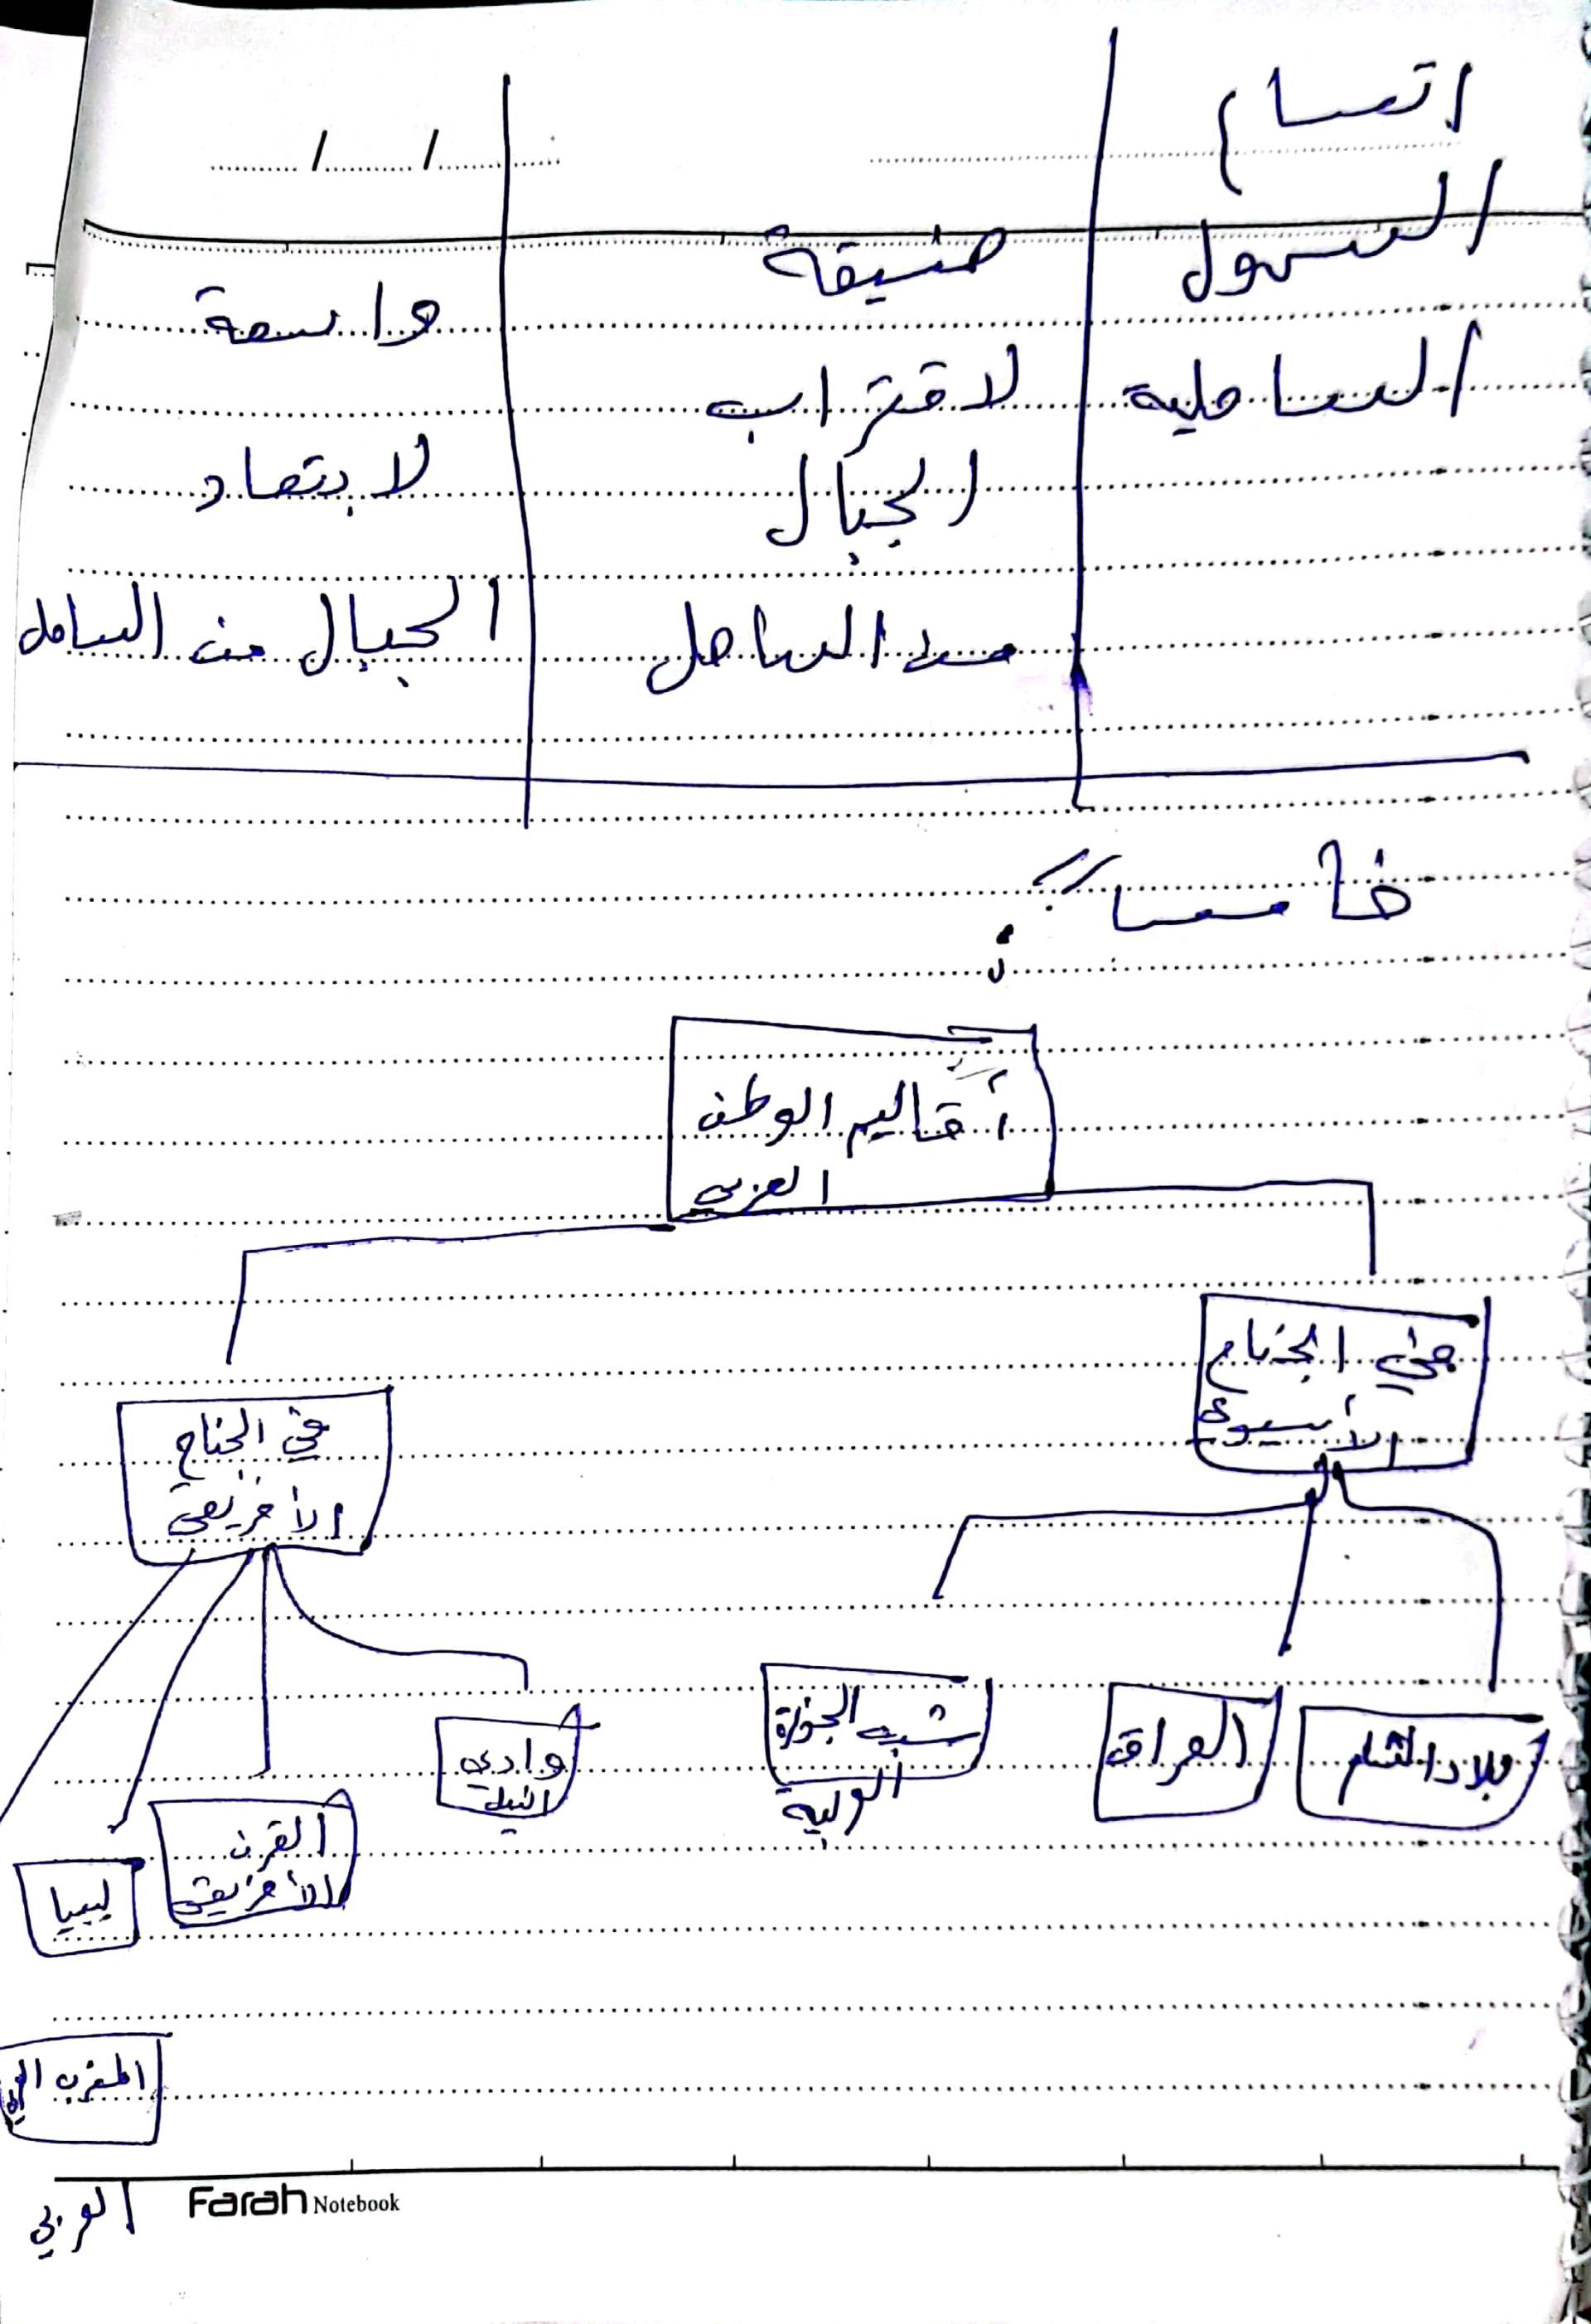 اتسام
السهول
الساحلية
ضيقة
لاقتراب
الجبال
من الساحل
/ /
واسعة
لابتعاد
الجبال من الساحل
خامسا
أقاليم الوطن
العربي
في الجناح
الأسيوي
في الجناح
الأفريقي
بلاد الشام
العراق
شبه الجزيرة
العربية
وادي
النيل
القرن
الأفريقي
ليبيا
المغرب العربي
العربي
Farah Notebook